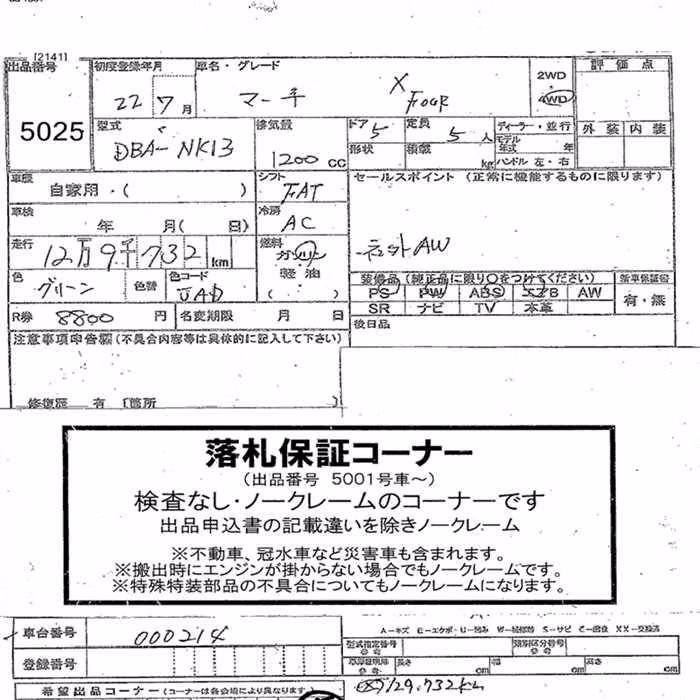 [2141]
出品番号 5025
初度登録年月 22 7月
車名・グレード マーチ X FOUR
2WD
4WD
評価点
外装 内装
型式 DBA-NK13
排気量 1200cc
ドア 5
定員 5人
形状
積載 kg
ディーラー・並行
モデル年式 年
ハンドル 左・右
車歴 自家用・( )
シフト FAT
セールスポイント (正常に機能するものに限ります)
社外AW
車検 年 月( 日)
冷房 AC
走行 12万9千732km
燃料 ガソリン 軽油 ( )
色 グリーン 色替
色コード JAD
装備品(純正品に限り○をつけてください)
PS PW ABS エアB AW
SR ナビ TV 本革
新車保証書 有・無
R券 8800円
名変期限 月 日
後日品
注意事項申告欄(不具合内容等は具体的に記入して下さい)
修復歴 有 [箇所 ]
落札保証コーナー
(出品番号 5001号車~)
検査なし・ノークレームのコーナーです
出品申込書の記載違いを除きノークレーム
※不動車、冠水車など災害車も含まれます。
※搬出時にエンジンが掛からない場合でもノークレームです。
※特殊特装部品の不具合についてもノークレームになります。
車台番号 000214
A-キズ E-エクボ U-凹み W-補修跡 S-サビ C-腐食 XX-交換済
型式指定番号 参考
類別区分番号 参考
登録番号
長さ cm 幅 cm 高さ cm
希望出品コーナー(コーナーは各会場により異なります)
129,732km